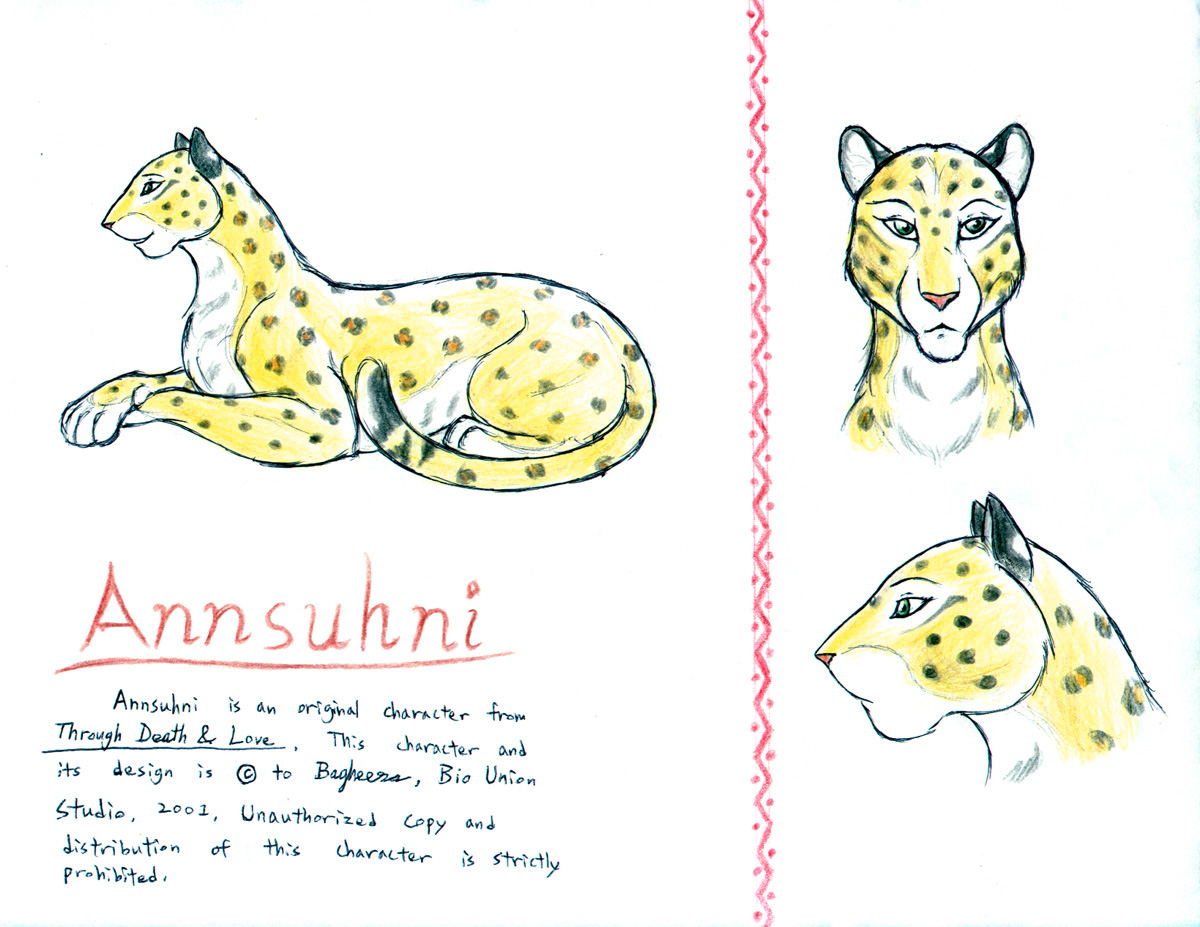 Annsuhni
Annsuhni is an original character from
Through Death & Love. This character and
its design is © to Bagheera, Bio Union
Studio, 2001, Unauthorized copy and
distribution of this character is strictly
prohibited.